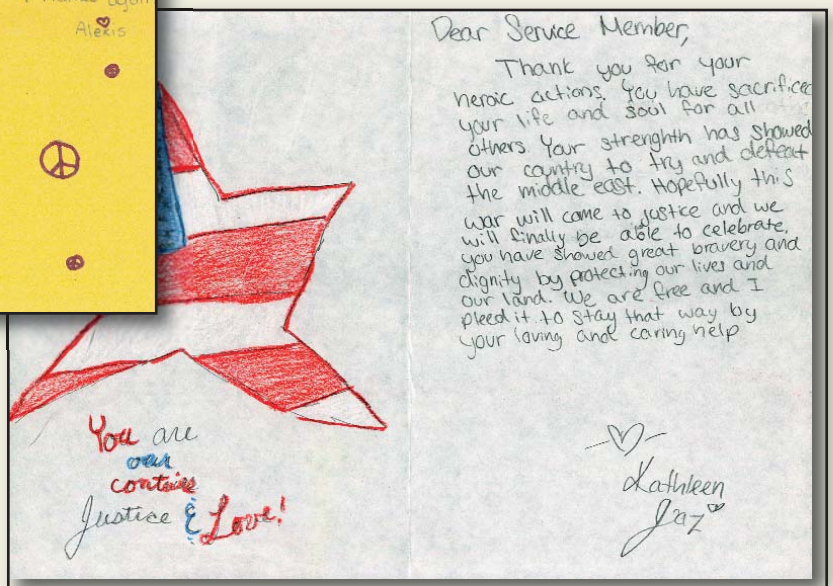 Alexis
Dear Service Member,
Thank you for your
heroic actions. You have sacrificed
your life and soul for all
others. Your strenghth has showed
our country to try and defeat
the middle east. Hopefully this
war will come to justice and we
will finally be able to celebrate.
you have showed great bravery and
dignity by protecting our lives and
our land. We are free and I
pleed it to stay that way by
your loving and caring help
Kathleen
You are
our
Justice & Love!